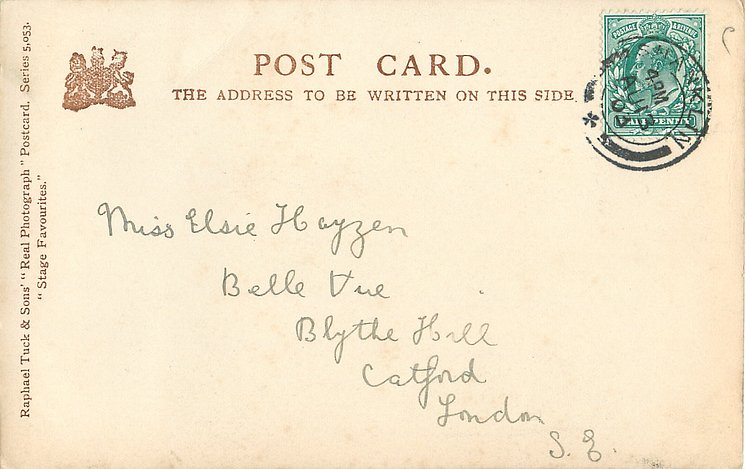 POST CARD.
THE ADDRESS TO BE WRITTEN ON THIS SIDE.
Raphael Tuck & Sons' "Real Photograph" Postcard. Series 5,053.
"Stage Favourites."
POSTAGE
4 PM
Miss Elsie Hayzen
Belle Vue
Blythe Hill
Catford
London
S. E.